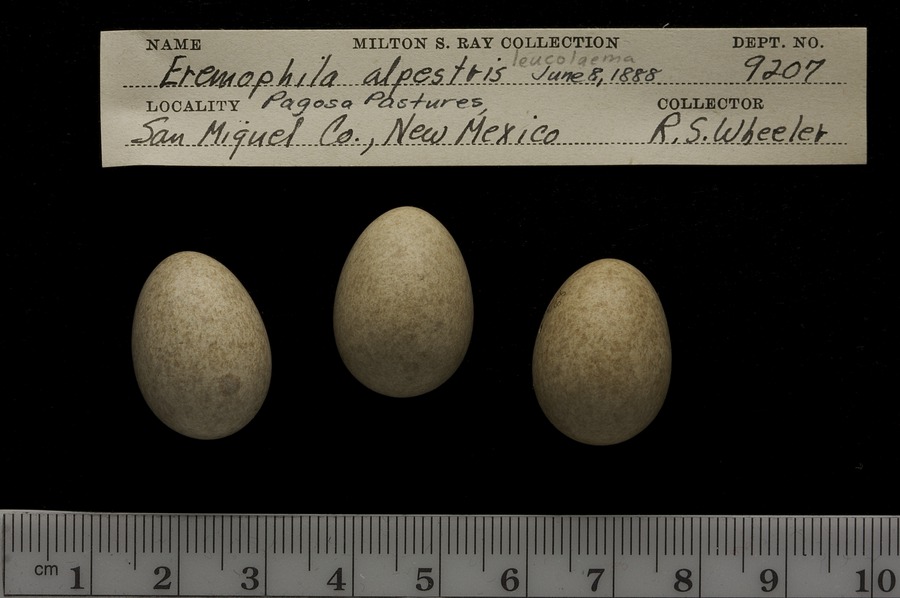 NAME MILTON S. RAY COLLECTION DEPT. NO.
leucolaema
Eremophila alpestris June 8, 1888 9207
LOCALITY Pagosa Pastures, COLLECTOR
San Miguel Co., New Mexico R.S. Wheeler
cm 1 2 3 4 5 6 7 8 9 10